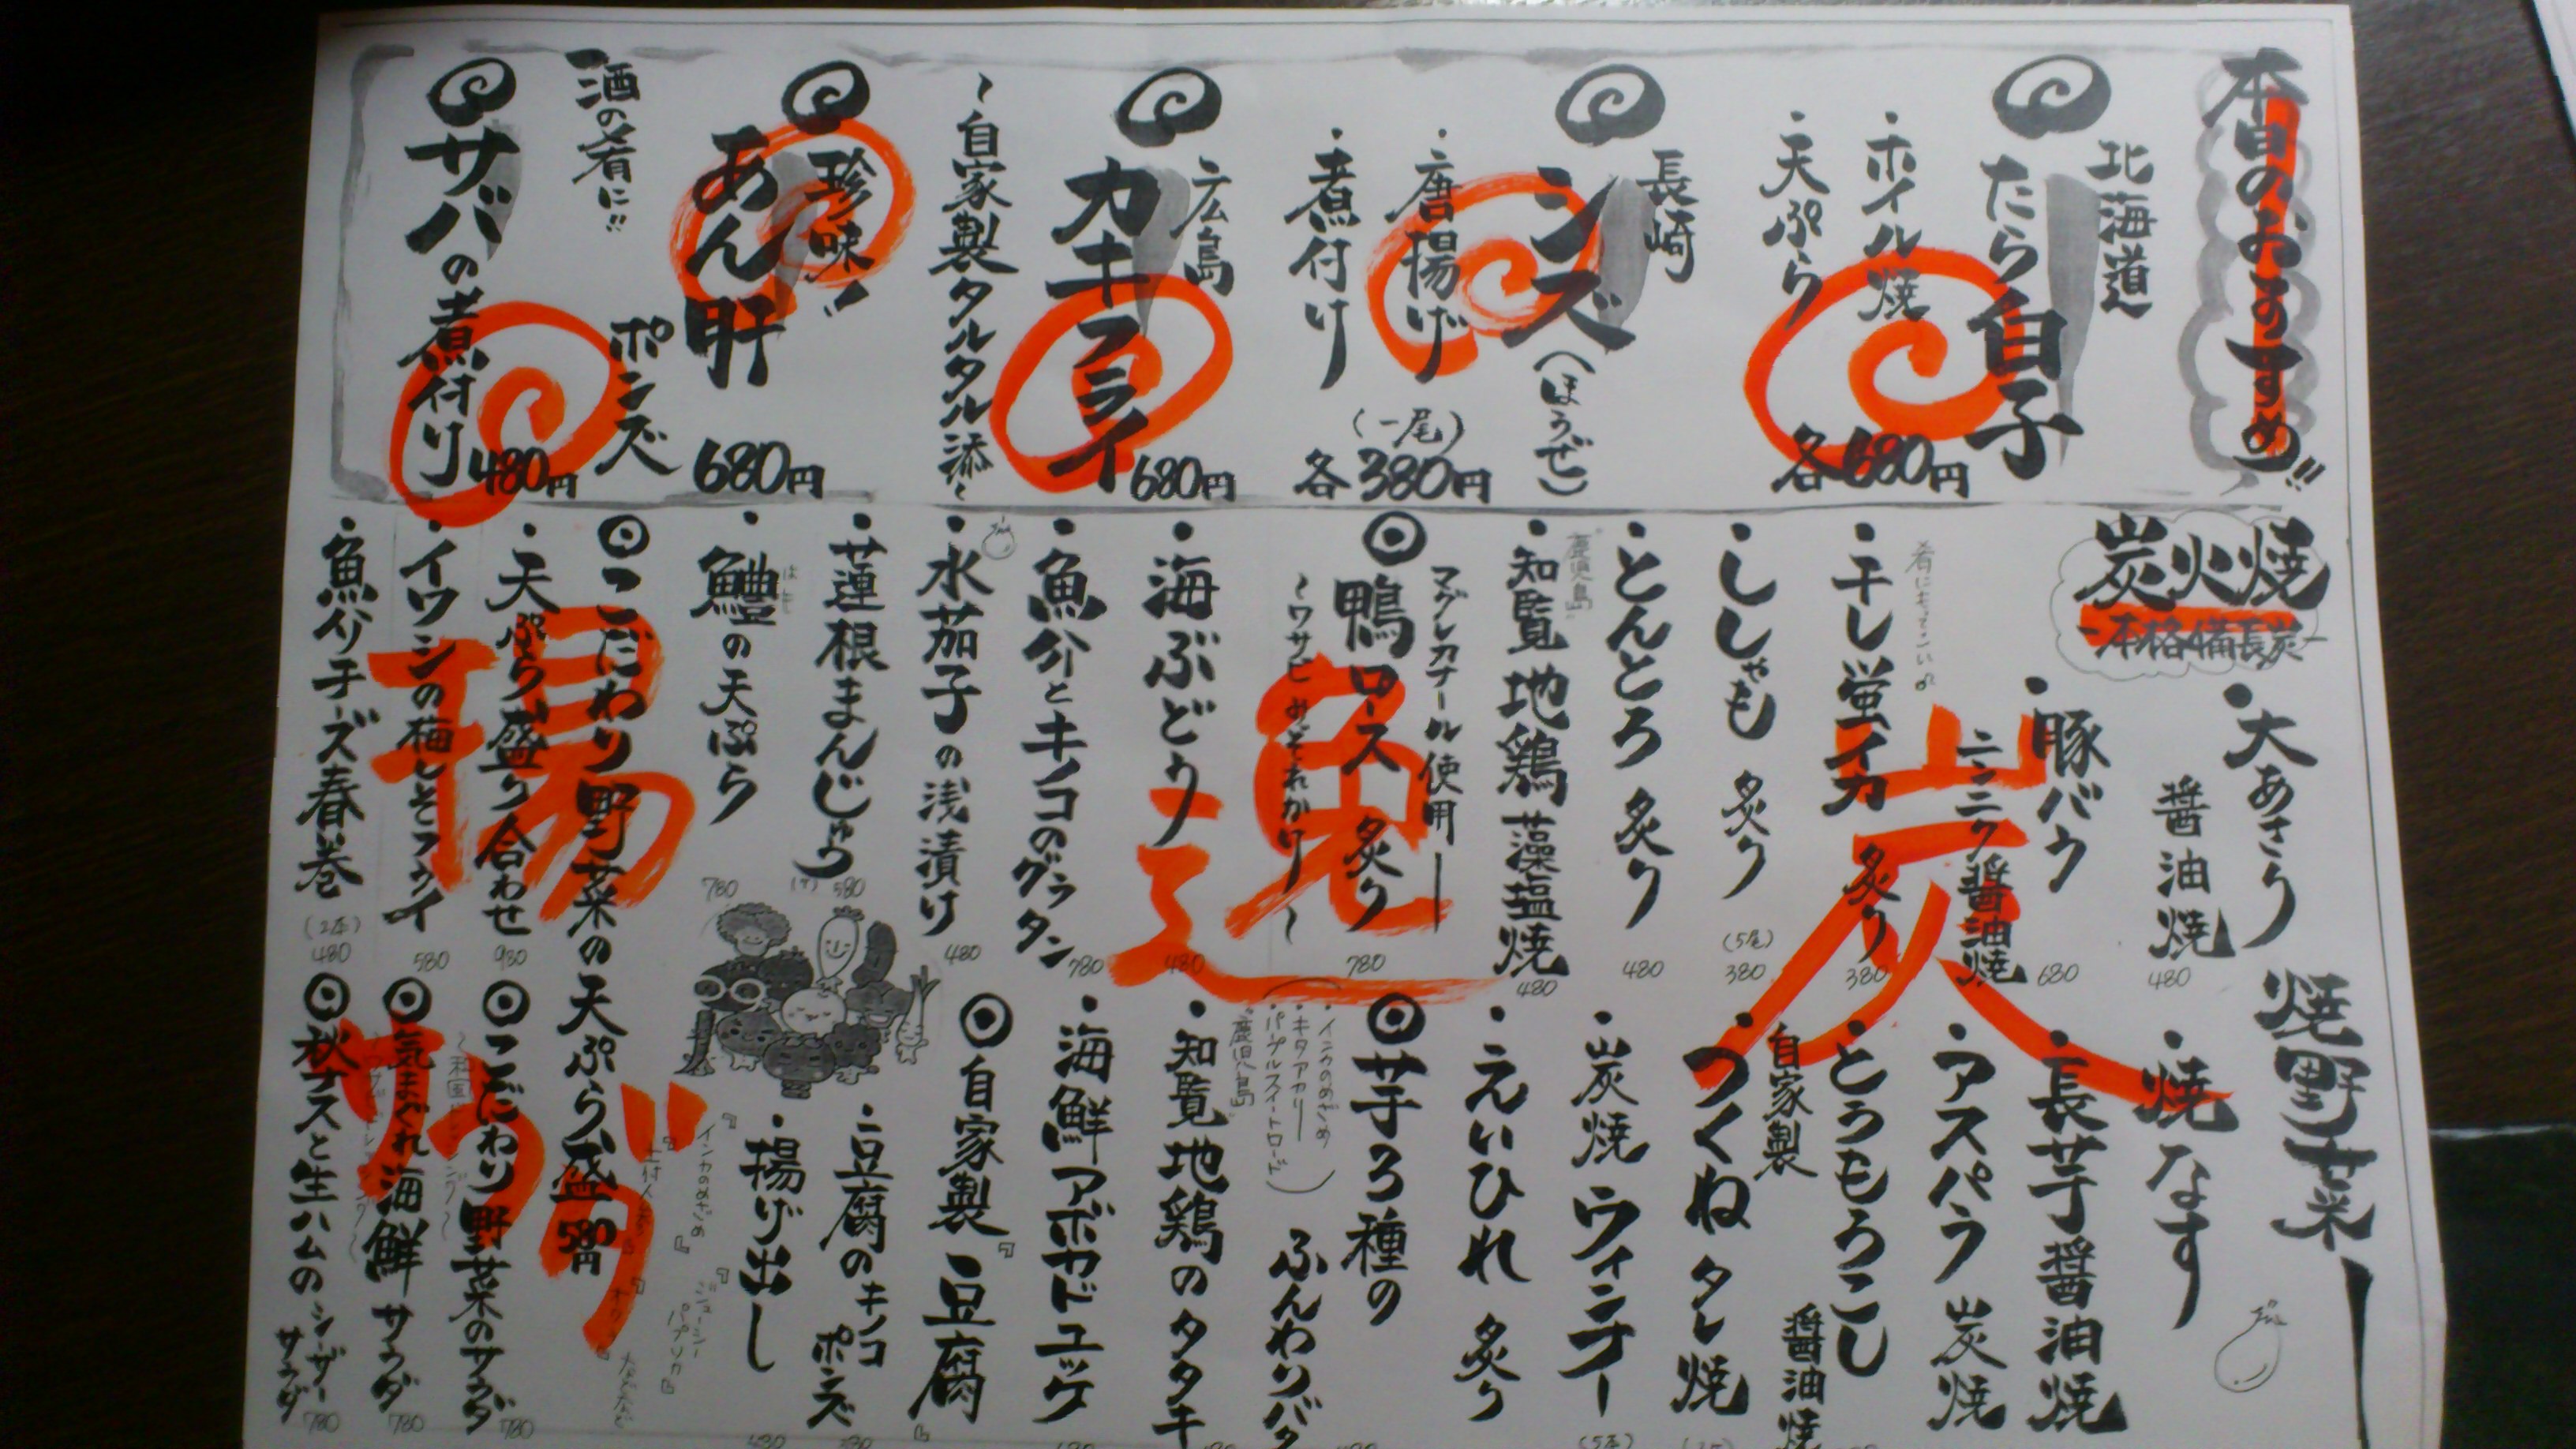 本日のおすすめ!!
北海道
たら白子
・ホイル焼
・天ぷら
各680円
長崎
シズ(ほうぜ)
・唐揚げ
・煮付け
(一尾)
各380円
広島
カキフライ
680円
～自家製タルタル添～
珍味!!
あん肝
680円
ポンズ
酒の肴に!!
サバの煮付け
480円
炭火焼
-本格備長炭-
・大あさり
醤油焼
480
・豚バラ
ニンニク醤油焼
680
・干し蛍イカ 炙り
380
・ししゃも 炙り
(5尾)
380
・とんとろ 炙り
480
鹿児島
・知覧地鶏藻塩焼
480
マグレカナール使用
◎鴨ロース 炙り
780
・海ぶどう
480
・魚介とキノコのグラタン
780
・水茄子の浅漬け
480
・蓮根まんじゅう
580
・鱧の天ぷら
はも
780
◎こだわり野菜の天ぷら盛
580円
・天ぷら盛り合わせ
930
・イワシの梅しそフライ
580
・魚介チーズ春巻
(2本)
480
焼野菜
・焼なす
・長芋醤油焼
・アスパラ 炭焼
・とうもろこし
醤油焼
自家製
・つくね タレ焼
・炭焼ウィンナー
(5本)
・えいひれ 炙り
◎芋3種の
ふんわりバタ
・インカのめざめ
・キタアカリ
・パープルスイートロード
鹿児島
・知覧地鶏のタタキ
・海鮮アボカドユッケ
◎自家製『豆腐』
・豆腐のキノコ
ポンズ
・揚げ出し
『インカのめざめ』
『ジューシーパプリカ』
などなど
◎こだわり野菜のサラダ
780
◎気まぐれ海鮮サラダ
780
◎秋ナスと生ハムの
シーザーサラダ
780
炭
逸
揚
サラダ